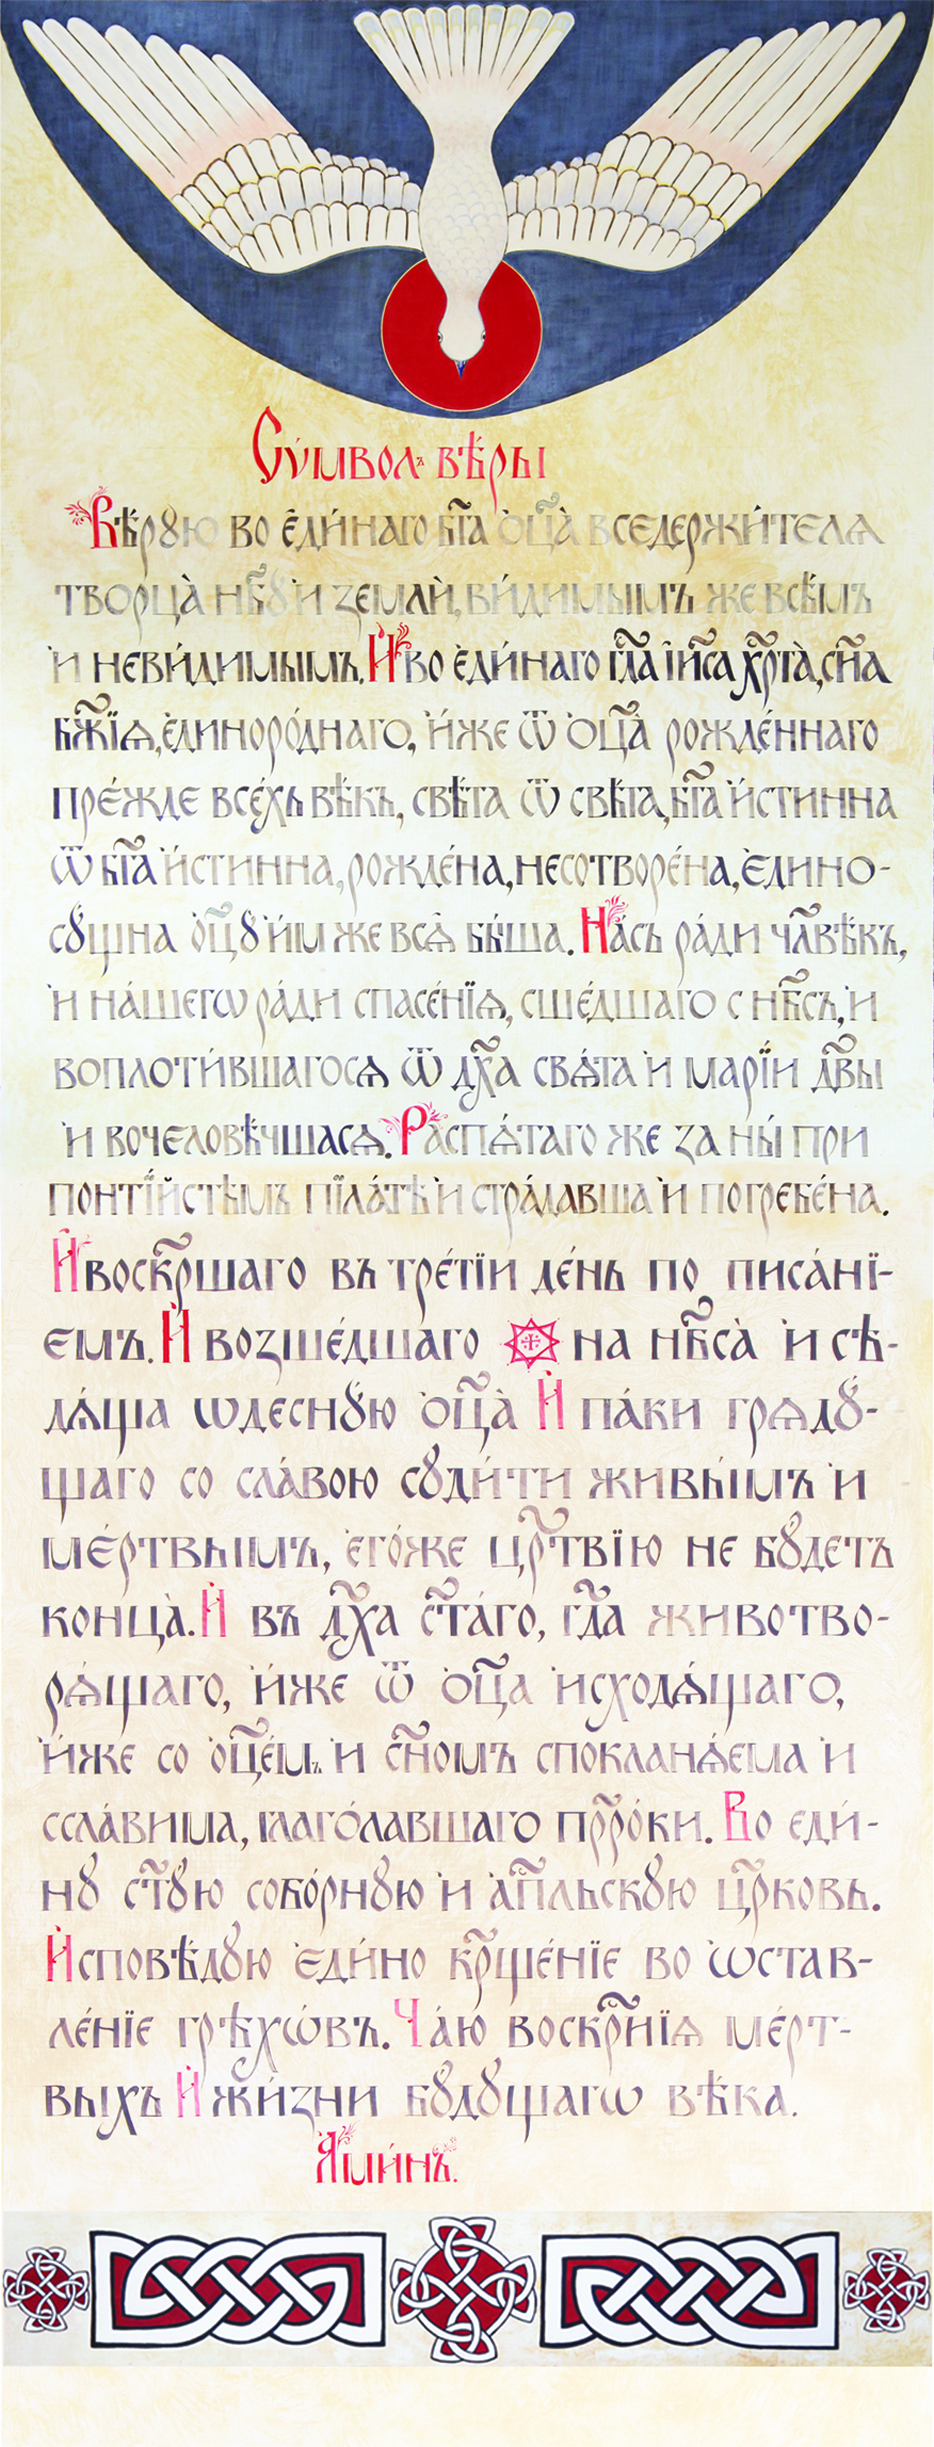 Сѵ́мволъ вѣ́ры
Вѣ́рꙋю во є҆ди́наго бг҃а ѻ҆ц҃а̀ вседержи́телѧ
творца̀ нб҃ꙋ и҆ землѝ, ви́димымъ же всѣ̑мъ
и҆ неви́димымъ. И҆ во є҆ди́наго гд҃а і҆и҃са хр҃та̀, сн҃а
бж҃їѧ, є҆диноро́днаго, и҆́же ѿ ѻ҆ц҃а̀ рожде́ннаго
пре́жде всѣ́хъ вѣ̑къ, свѣ́та ѿ свѣ́та, бг҃а и҆́стинна
ѿ бг҃а и҆́стинна, рожде́на, несотворе́на, є҆дино-
сꙋщна ѻ҆ц҃ꙋ̀ и҆́мже всѧ̑ бы́ша. На́съ ра́ди чл҃вѣ̑къ,
и҆ на́шегѡ ра́ди спасе́нїѧ, сше́дшаго с нб҃съ, и҆
воплоти́вшагосѧ ѿ дх҃а свѧ́та и҆ марі́и дв҃ы
и҆ вочеловѣ́чшасѧ. Распѧ́таго же за ны̀ при
понті́йстѣмъ пїла́тѣ и҆ страда́вша и҆ погребе́на.
И҆ воскр҃шаго въ тре́тїи де́нь по писа́нї-
ємъ. И҆ возше́дшаго на нб҃са̀ и҆ сѣ-
дѧ́ща ѡдеснꙋю ѻ҆ц҃а̀ И҆ па́ки грѧдꙋ́-
щаго со сла́вою сꙋди́ти живы́мъ и҆
ме́ртвымъ, є҆го́же цр҃твїю не бꙋ́детъ
конца̀. И҆ въ дх҃а ст҃а́го, гд҃а животво-
рѧ́щаго, и҆́же ѿ ѻ҆ц҃а и҆сходѧ́щаго,
и҆́же со ѻ҆ц҃е́мъ и҆ сн҃омъ спокланѧ́ема и҆
ссла́вима, глаго́лавшаго прⷪ҇ро́ки. Во єди́-
нꙋ ст҃ꙋю собо́рнꙋю и҆ а҆п҃льскꙋю цр҃ковь.
И҆сповѣ́дꙋю є҆ди́но кр҃ще́нїе во ѡ҆став-
ле́нїе грѣхѡ́въ. Ча́ю воскр҃нїѧ ме́рт-
выхъ И҆ жи́зни бꙋ́дꙋщагѡ вѣ́ка.
А҆ми́нь.